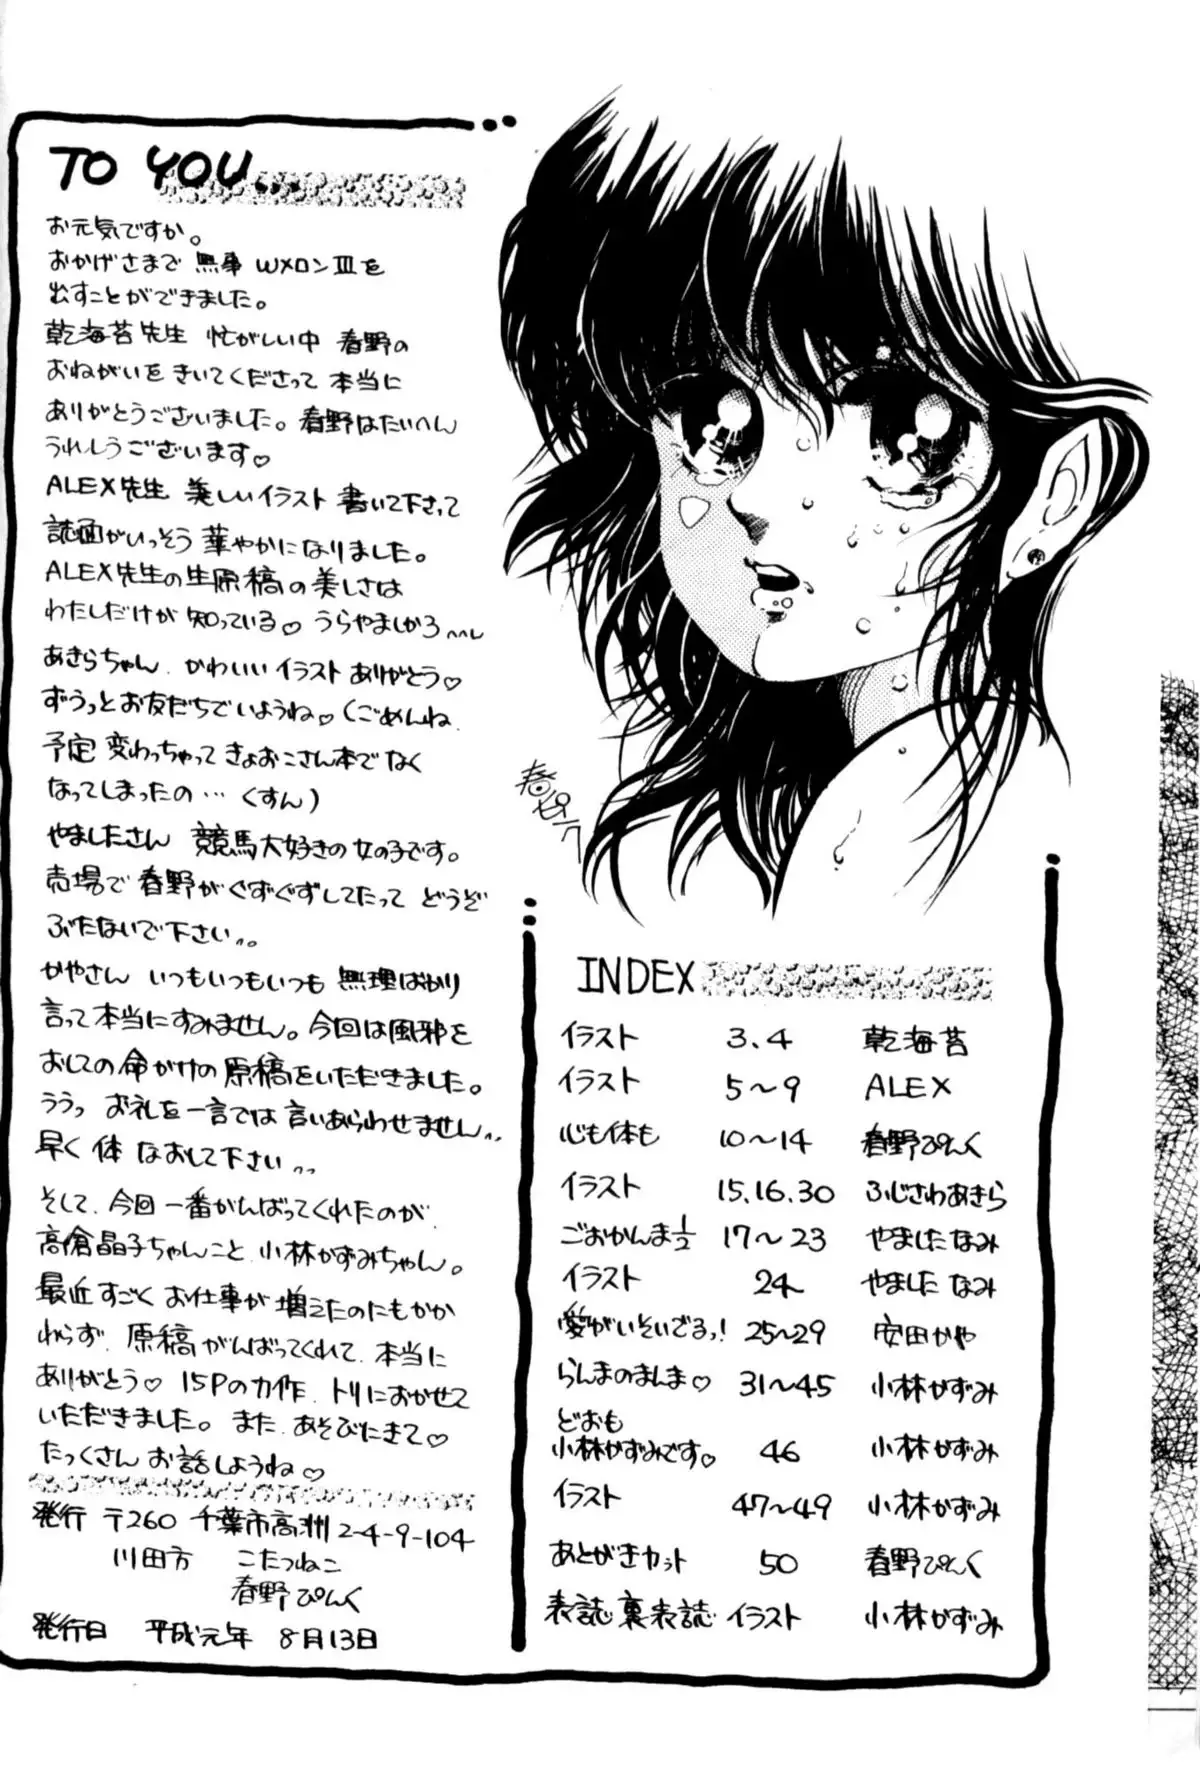 TO YOU...
お元気ですか。
おかげさまで 無事 WメロンⅢを
出すことができました。
乾海苔先生 忙がしい中 春野の
おねがいを きいてくださって 本当に
ありがとうございました。春野はたいへん
うれしうございます♡
ALEX先生 美しいイラスト 書いて下さって
誌面がいっそう 華やかになりました。
ALEX先生の生原稿の美しさは
わたしだけが 知っている♡ うらやましかろ
あきらちゃん、かわいい イラスト ありがとう♡
ずうっとお友だちでいようね♡(ごめんね、
予定 変わっちゃって きょおこさん本でなく
なってしまったの… くすん)
やましたさん 競馬大好きの女の子です。
売場で 春野がぐずぐずしてたって どうぞ
ぶたないで下さい
かやさん いつもいつもいつも 無理ばかり
言って本当にすみません。今回は風邪を
おしての命がけの原稿をいただきました。
ううっ お礼を一言では 言いあらわせません
早く 体 なおして下さい
そして、今回 一番がんばってくれたのが、
高倉晶子ちゃんこと、小林かずみちゃん。
最近 すごく お仕事が 増えたのにもかか
わらず、原稿がんばってくれて、本当に
ありがとう♡ 15Pの力作、トリにおかせて
いただきました。また、あそびにきて♡
たっくさん お話しようね♡
発行 〒260 千葉市高洲2-4-9-104
川田方 こたつねこ
春野ぴんく
発行日 平成元年 8月13日
INDEX
イラスト 3.4 乾海苔
イラスト 5〜9 ALEX
心も体も 10〜14 春野ぴんく
イラスト 15.16.30 ふじさわあきら
ごおかんま1/2 17〜23 やましたなみ
イラスト 24〜 やました なみ
愛がいそいでるっ! 25〜29 安田かや
らんまのまんま♡ 31〜45 小林かずみ
どおも
小林かずみです♡ 46 小林かずみ
イラスト 47〜49 小林かずみ
あとがきカット 50 春野ぴんく
表誌 裏表誌 イラスト 小林かずみ